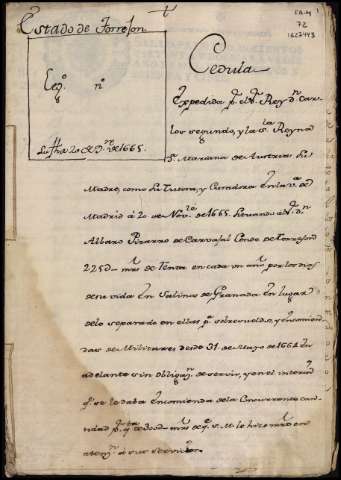 Estado de Torrejon
Leg.º n.º
Su fha 20 de 9.re de 1665.
Ca.4
72
1627443
Cedula
Expedida p.r el S.r Rey d.n Car
los segundo, y la S.ra Reyna
D.ª Mariana de Austria su
Madre, como su Tutora, y Curadora en la v.ª de
Madrid á 20 de Nov.re de 1665. librando á d.n
Albaro Pizarro de Carvajal Conde de Torrejon
225D mrs de renta en cada un año por los dias
de su vida en Salinas de Granada en lugar
de lo separado en ellas p.ª sobresueldos, y encomien
das de Militares desde 31 de Marzo de 1664 en
adelante sin obligaz.n de servir, y en el interin
q.e se le daba encomienda de la
tidad p.r q.ta de mrs de q.e S. M. le hizo mrd en
atenz.n á sus servicios.